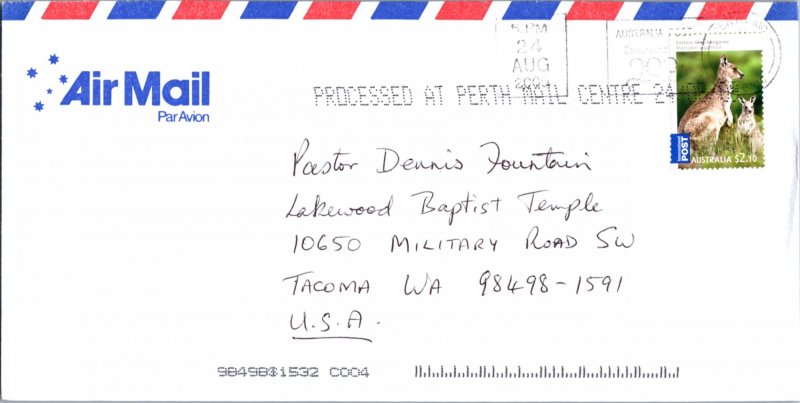 Air Mail
Par Avion
5 PM
24
AUG
2009
AUSTRALIA POST
PROCESSED AT PERTH MAIL CENTRE 24
International
POST
AUSTRALIA $2.10
Pastor Dennis Fountain
Lakewood Baptist Temple
10650 MILITARY ROAD SW
TACOMA WA 98498-1591
U.S.A.
98498$1532 C004